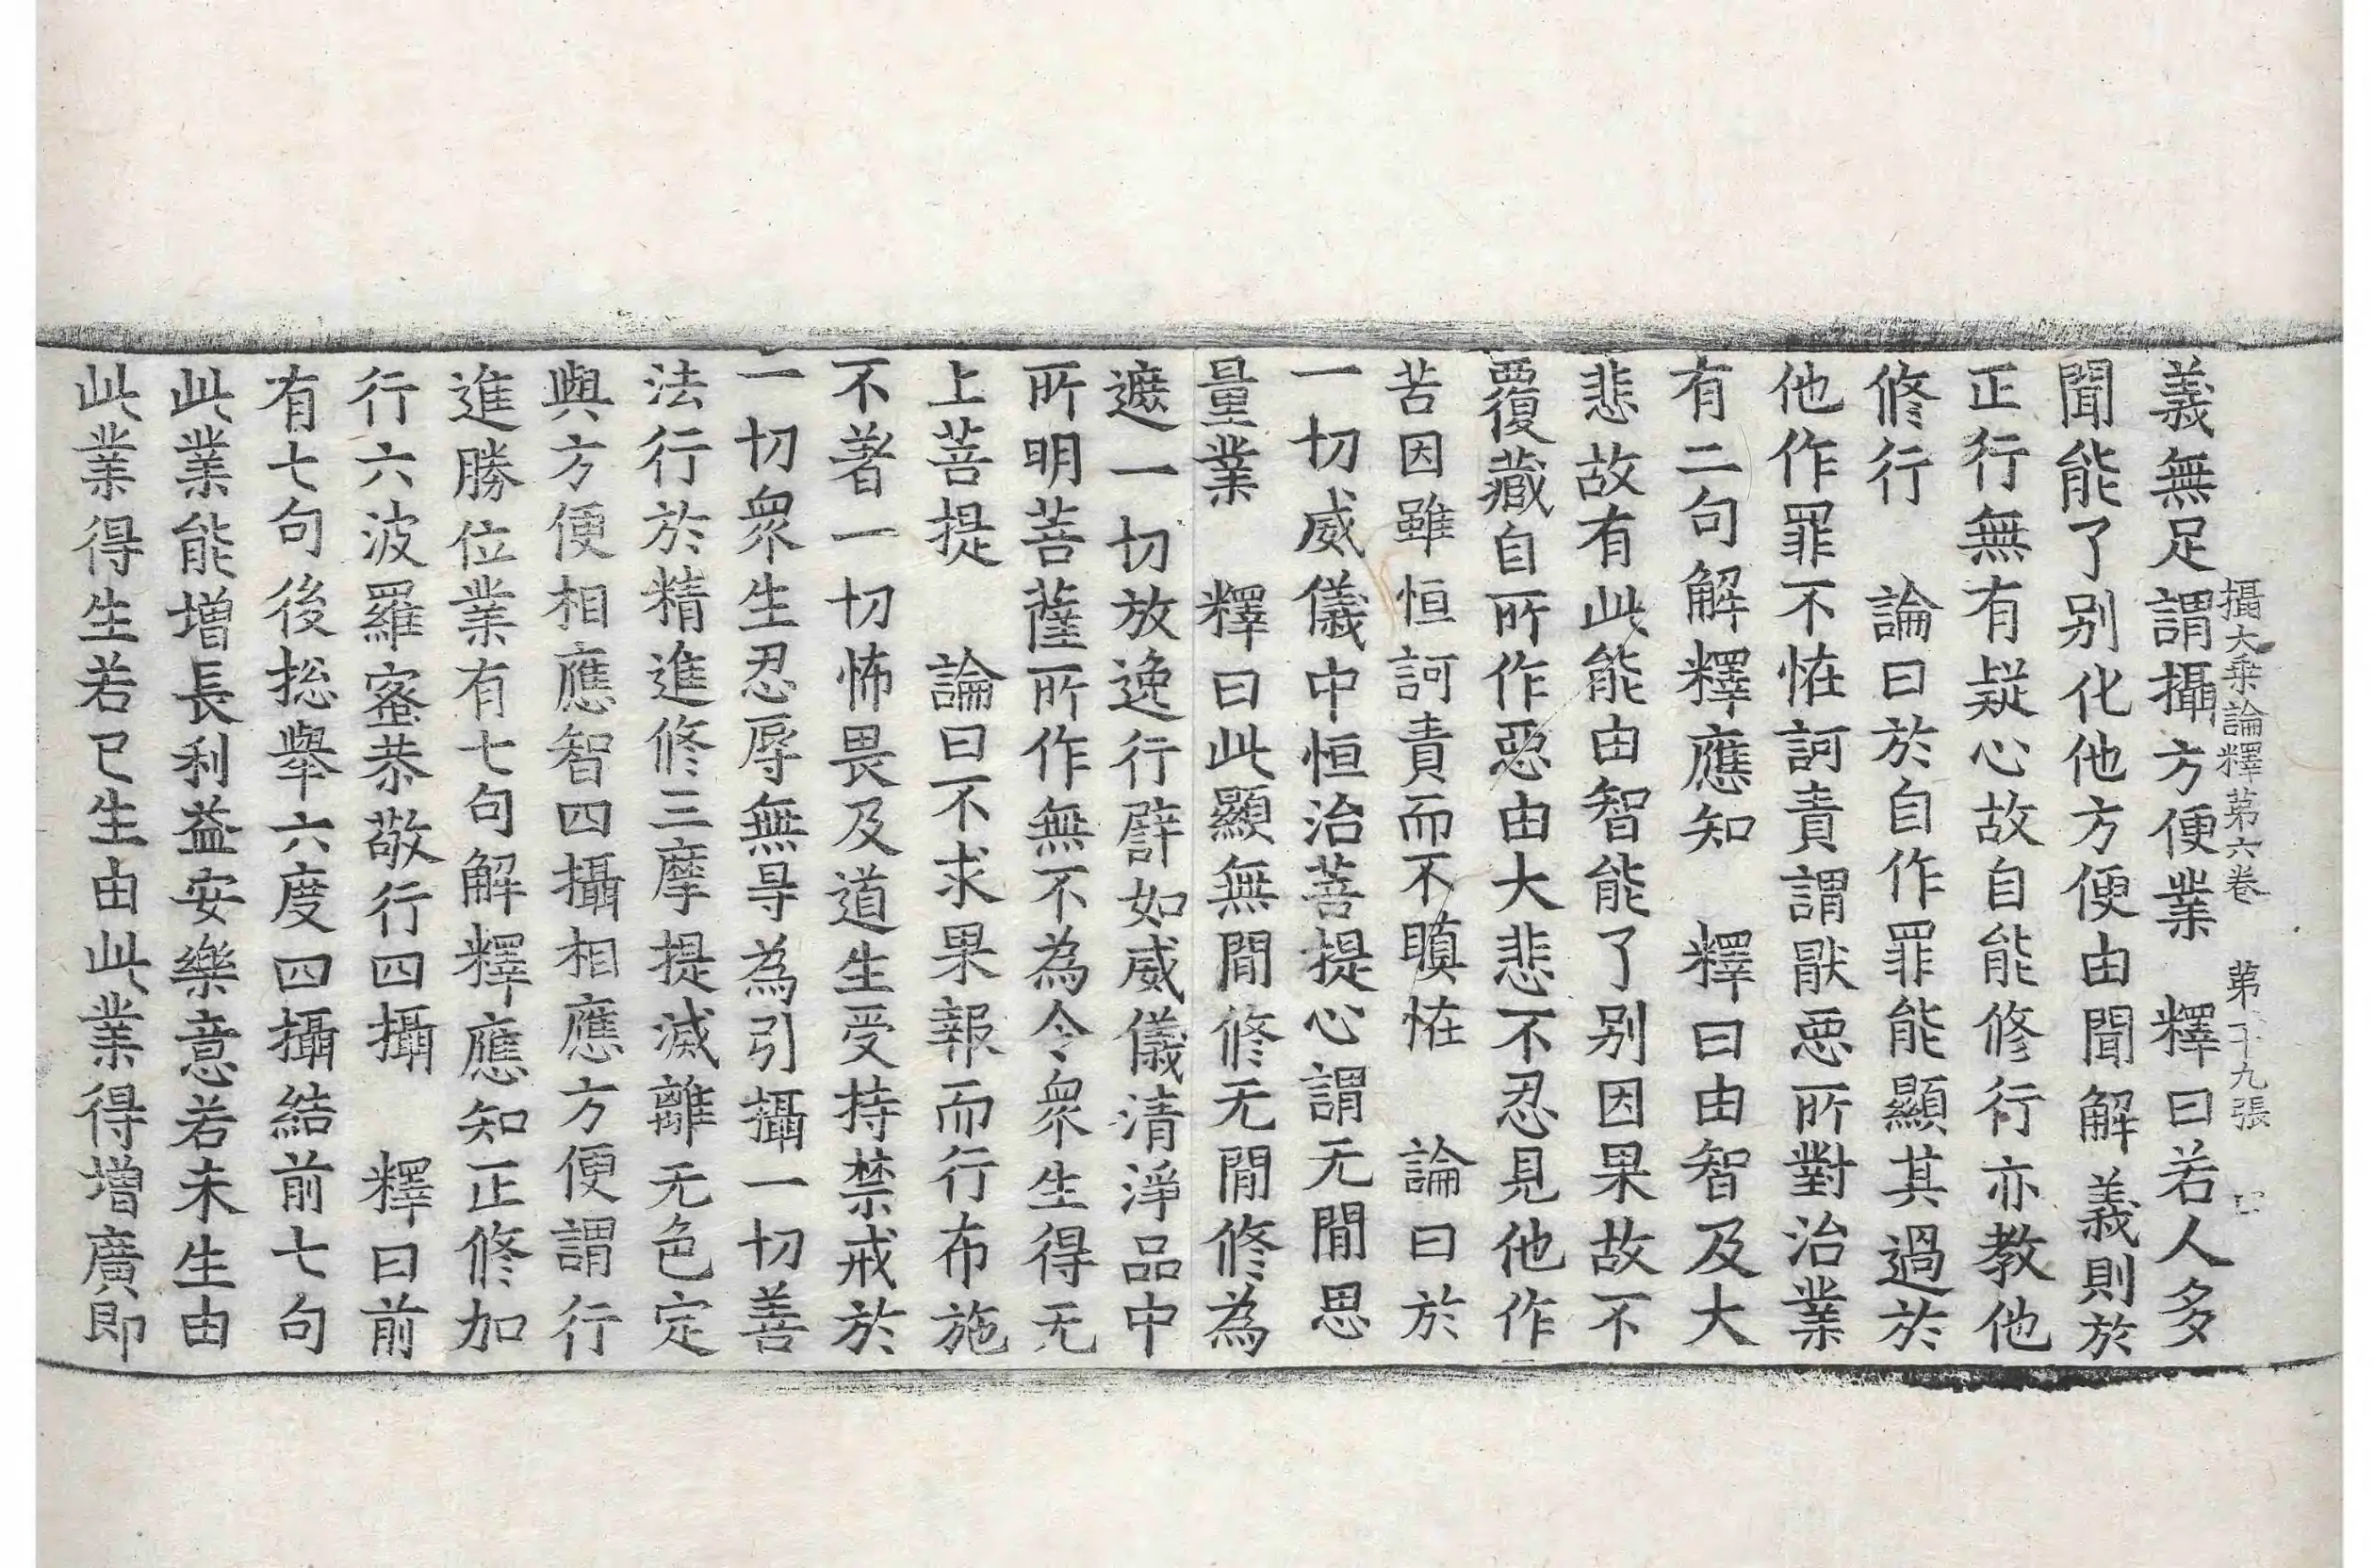 攝大乘論釋第六卷　第十九張
義無足謂攝方便業　釋曰若人多
聞能了別化他方便由聞解義則於
正行無有疑心故自能修行亦教他
修行　論曰於自作罪能顯其過於
他作罪不恠訶責謂猒惡所對治業
有二句解釋應知　釋曰由智及大
悲故有此能由智能了別因果故不
覆藏自所作惡由大悲不忍見他作
苦因雖恒訶責而不瞋恠　論曰於
一切威儀中恒治菩提心謂无閒思
量業　釋曰此顯無閒修无閒修為
遮一切放逸行譬如威儀清淨品中
所明菩薩所作無不為令衆生得无
上菩提　論曰不求果報而行布施
不著一切怖畏及道生受持禁戒於
一切衆生忍辱無㝵為引攝一切善
法行於精進修三摩提滅離无色定
與方便相應智四攝相應方便謂行
進勝位業有七句解釋應知正修加
行六波羅蜜恭敬行四攝　釋曰前
有七句後捴舉六度四攝結前七句
此業能增長利益安樂意若未生由
此業得生若已生由此業得增廣即